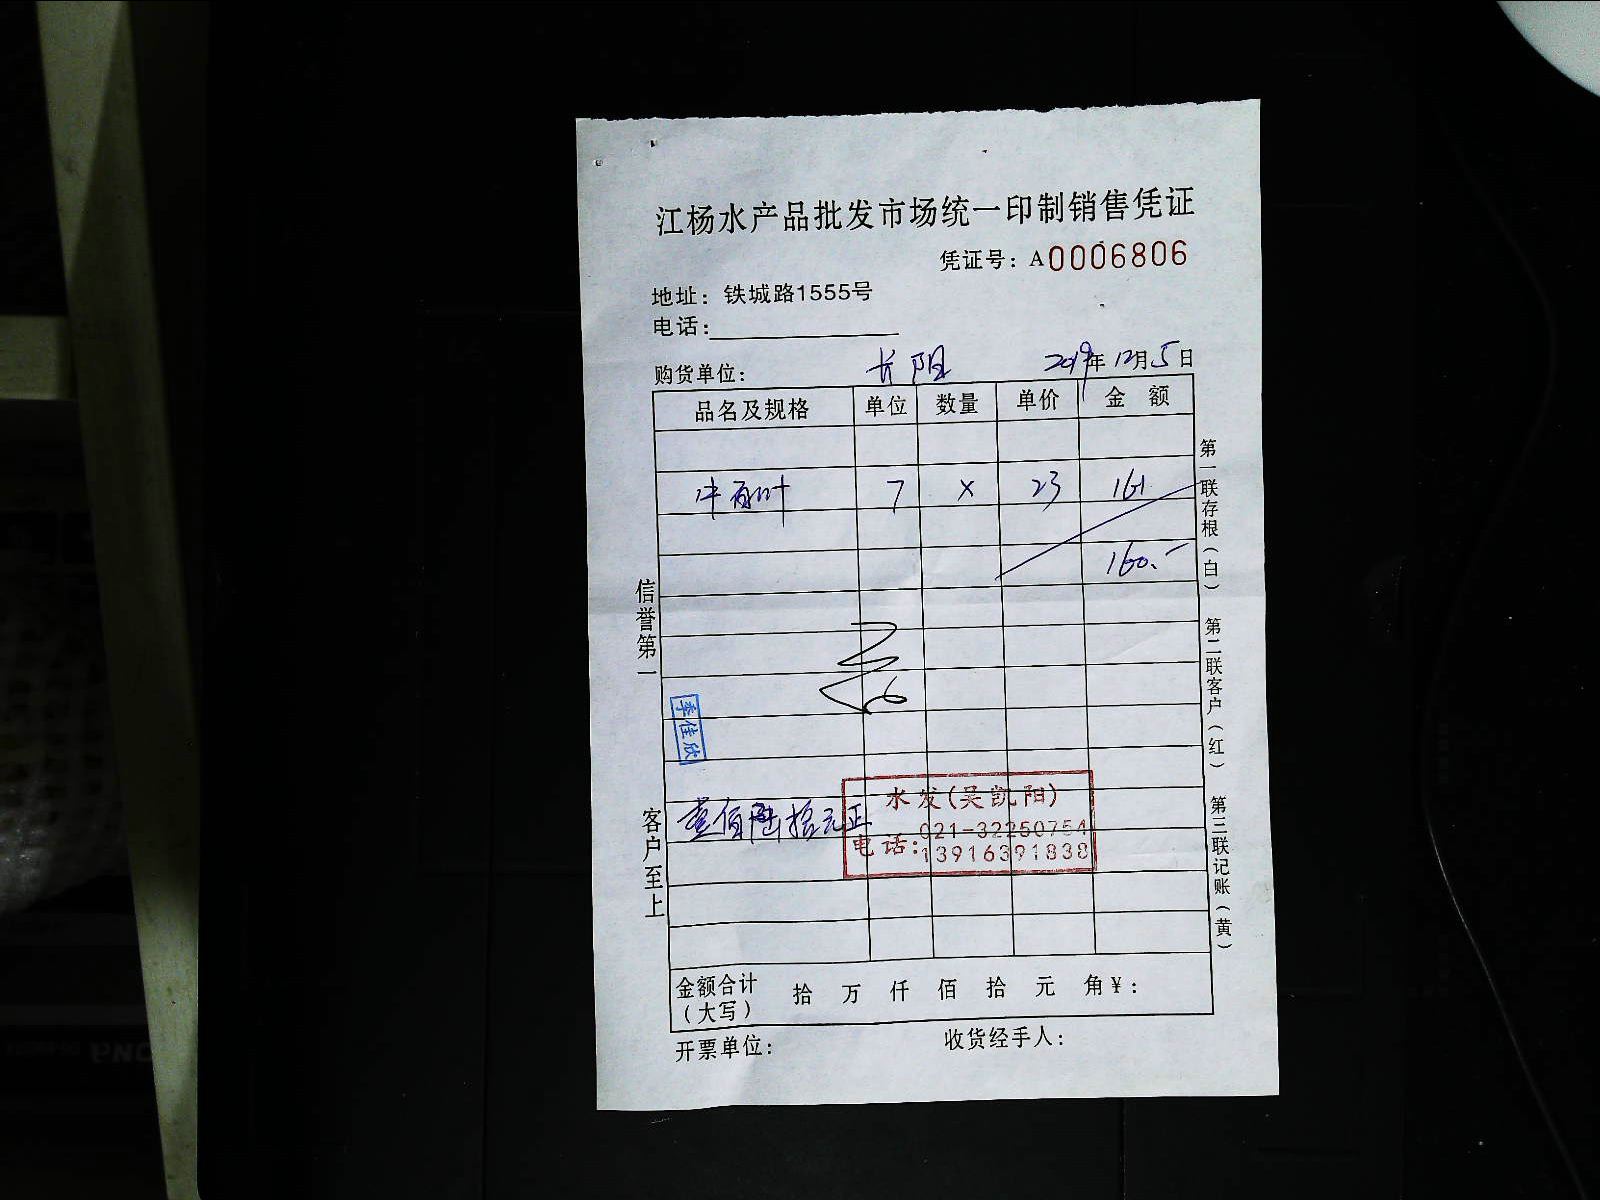 江杨水产品批发市场统一印制销售凭证
凭证号：A0006806
地址：铁城路1555号
电话：
购货单位：长阳 2019年12月5日
品名及规格 单位 数量 单价 金额
牛百叶 7 × 23 161
160.-
季佳欣
壹佰陆拾元正
水发(吴凯阳)
电话：021-32250754
13916391838
金额合计（大写） 拾 万 仟 佰 拾 元 角 ¥：
开票单位： 收货经手人：
信誉第一
客户至上
第一联存根（白）
第二联客户（红）
第三联记账（黄）